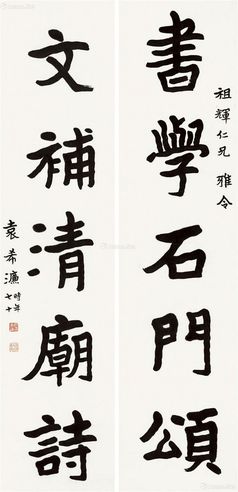 祖輝仁兄 雅令
書學石門頌
文補清廟詩
袁希濂 時年七十